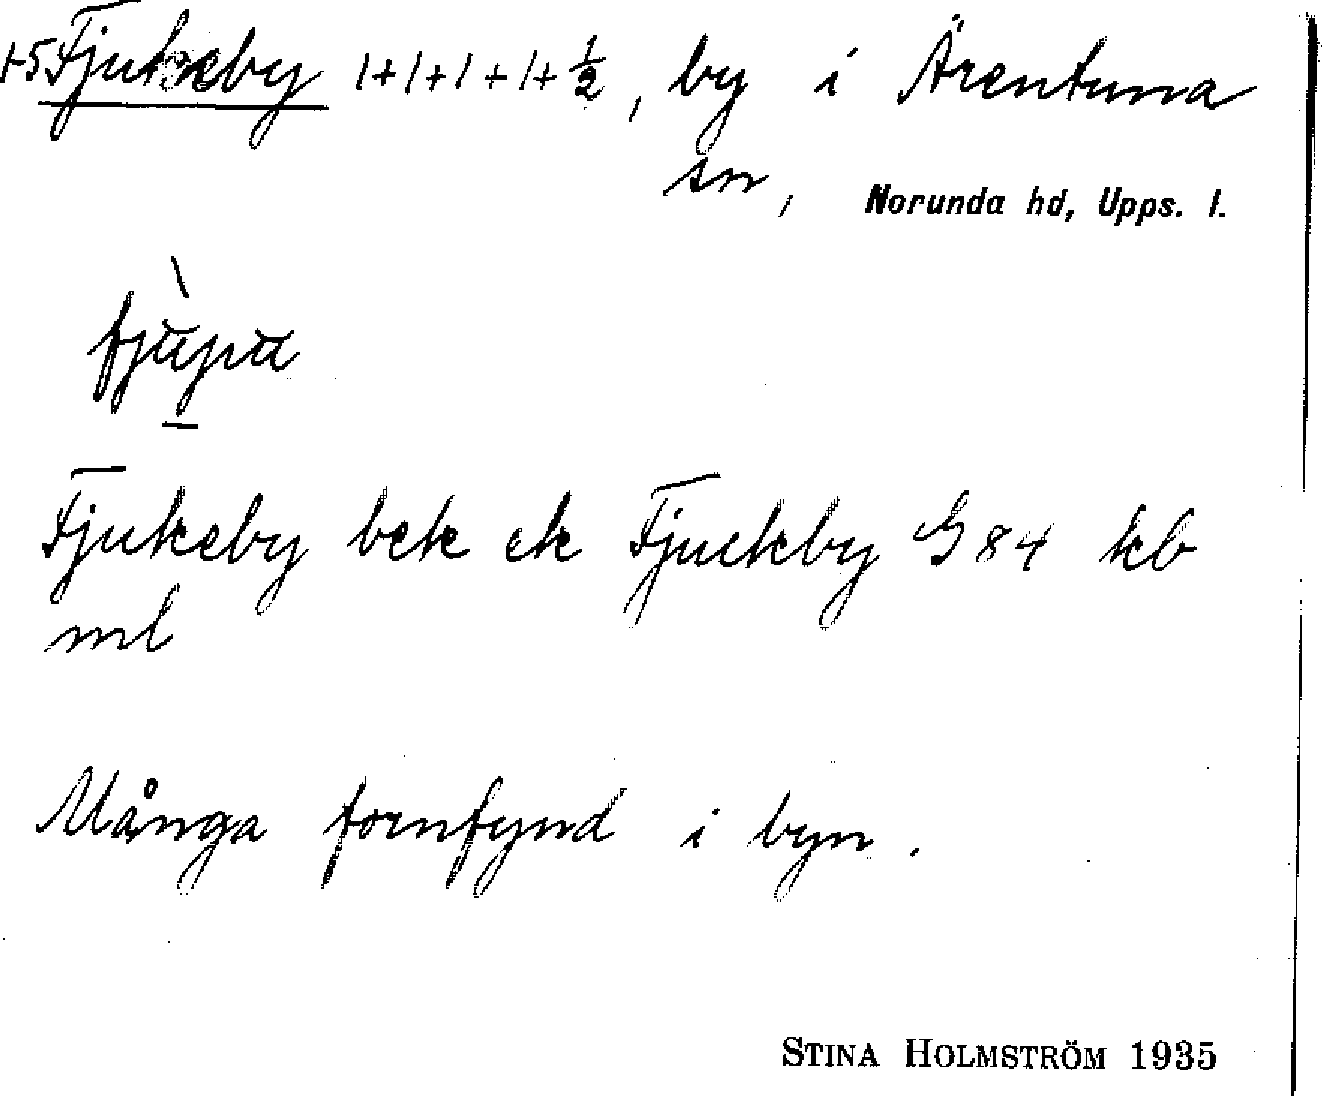 1-5 Fjukeby 1+1+1+1+½, by i Ärentuna
sn, Norunda hd, Upps. l.
Fjukeby bek ek Fjuckby G 84 kb
ml
Många fornfynd i byn.
STINA HOLMSTRÖM 1935